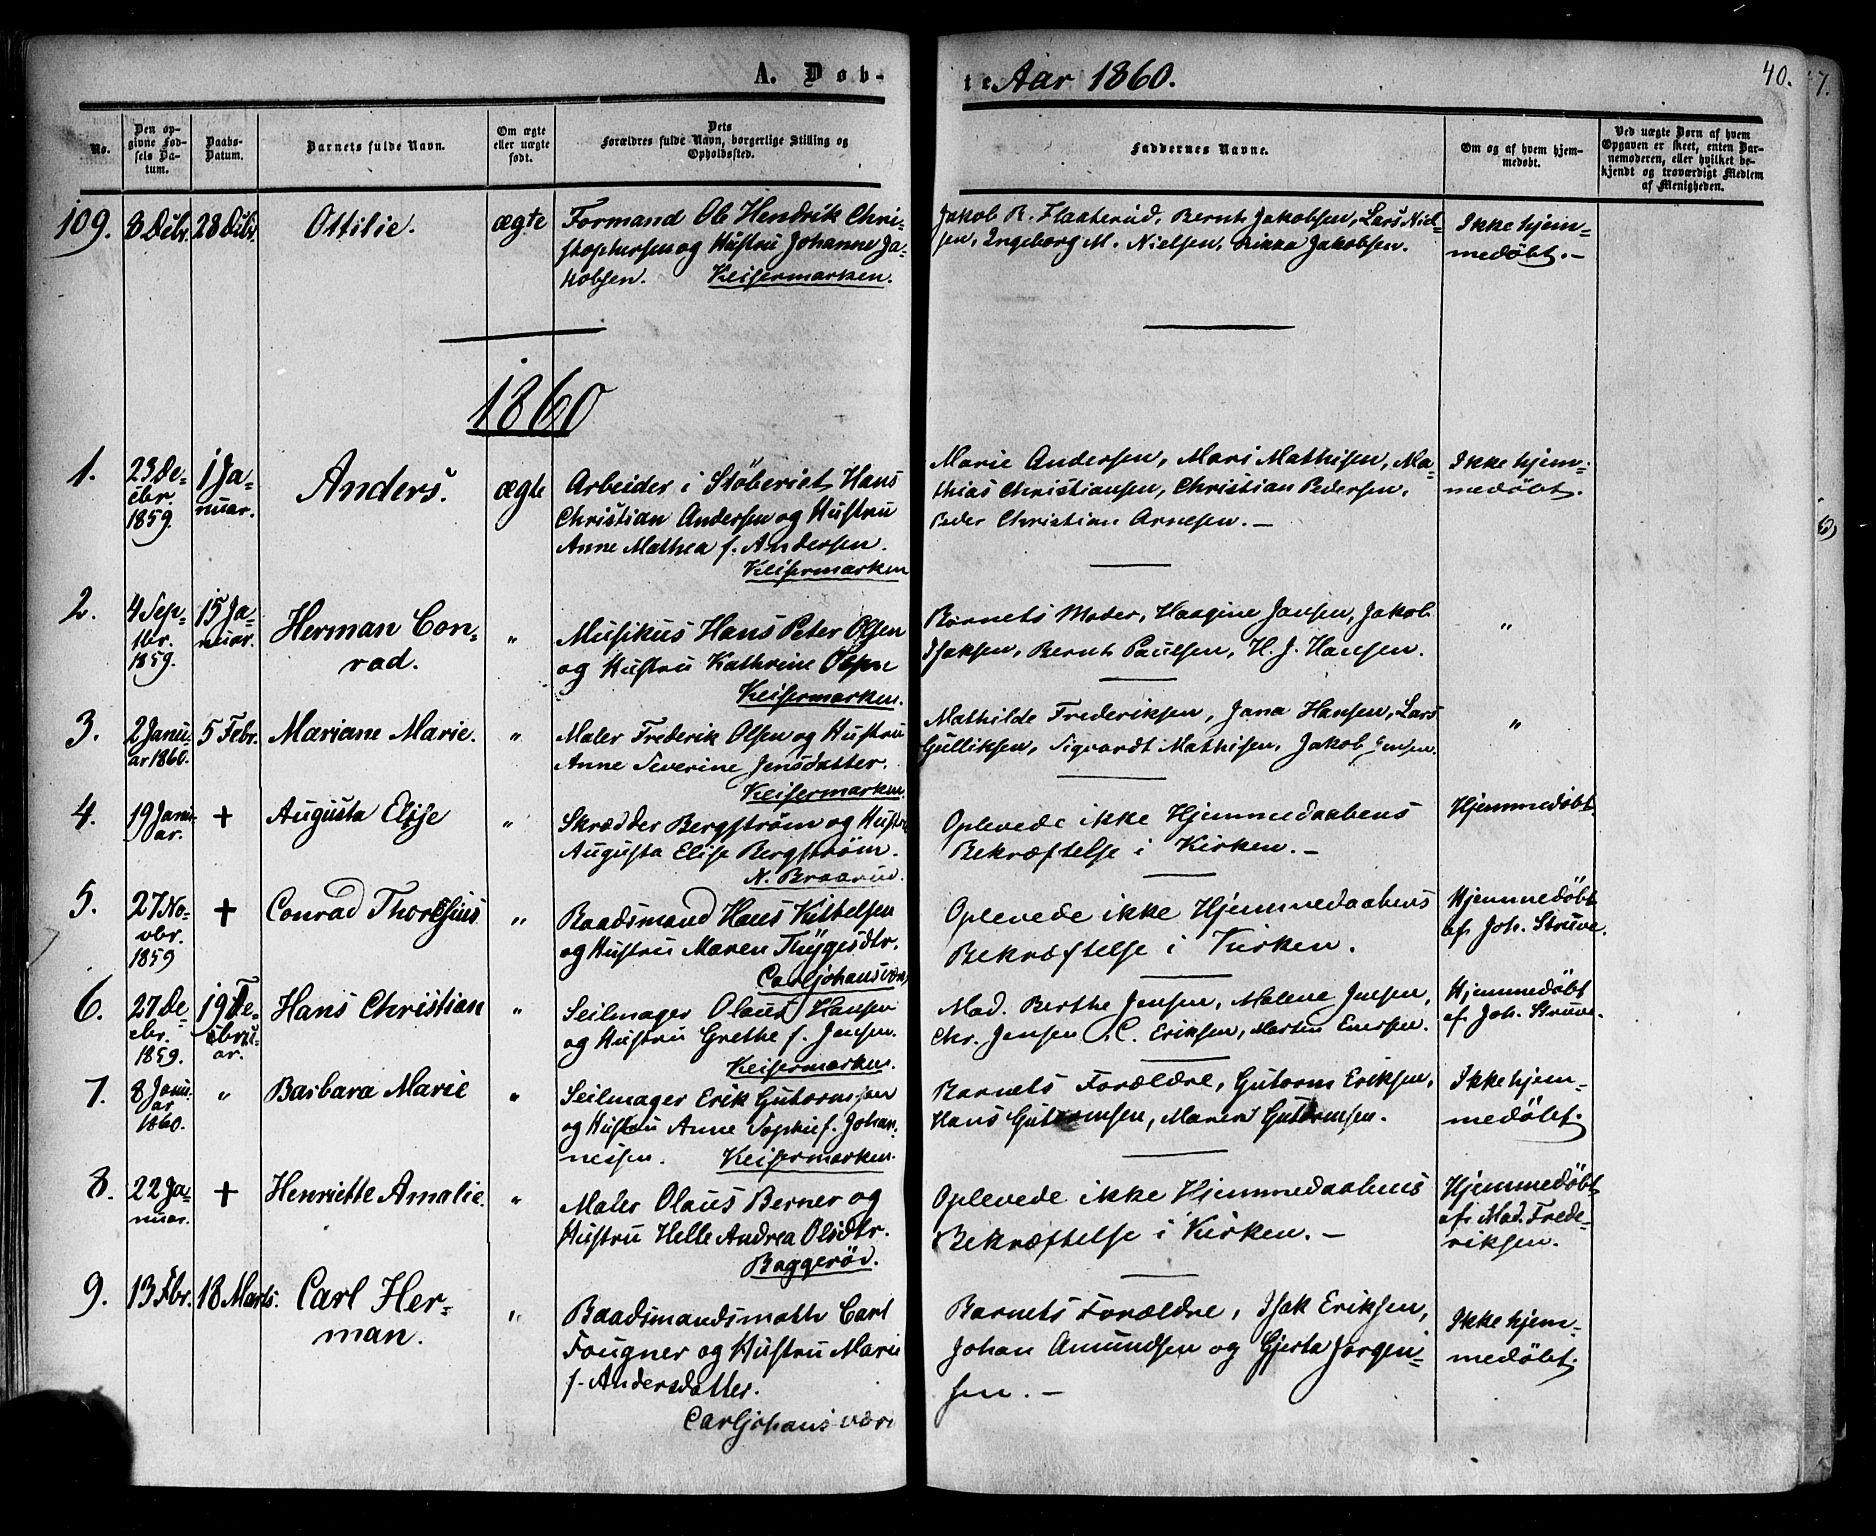 A. Døb-
te Aar 1860.
40.
7.
No.
Den opgivne Fødsels Datum.
Daabs-Datum.
Barnets fulde Navn.
Om ægte eller uægte født.
Dets Forældres fulde Navn, borgerlige Stilling og Opholdssted.
Faddernes Navne.
Om og af hvem hjemmedøbt.
Ved uægte Børn af hvem Opgaven er skeet, enten Barnemoderen, eller hvilket bekjendt og troværdigt Medlem af Menigheden.
109. 8 Debr. 28 Debr. Ottilie. ægte
Formand Ole Hendrik Chri-
stophersen og Hustru Johanne Ja-
kobsen. Keisermarken.
Jakob R. Flaaterud, Bernt Jakobsen, Lars Niel-
sen, Ingeborg M. Nielsen, Rikka Jakobsen.
Ikke hjem-
medøbt.-
1860
1. 23 De-
cbr.
1859.
1 Ja-
nuar.
Anders. ægte
Arbeider i Støberiet Hans
Christian Andersen og Hustru
Anne Mathea f. Andersen.
Keisermarken
Marie Andersen, Mari Mathisen, Ma-
thias Christiansen, Christian Pedersen,
Peder Christian Arnesen.-
Ikke hjem-
medøbt.
2. 4 Sep-
tbr.
1859.
15 Ja-
nuar.
Herman Con-
rad.
"
Musikus Hans Peter Olsen
og Hustru Kathrine Olsen
Keisermarken.
Barnets Moder, Haagine Jansen, Jakob
Isaksen, Bernt Paulsen, H. J. Hansen.
"
3. 2 Janu-
ar 1860.
5 Febr. Mariane Marie. "
Maler Frederik Olsen og Hustru
Anne Severine Jensdatter.
Keisermarken.
Mathilde Frederiksen, Jana Hansen, Lars
Gulliksen, Sigvardt Mathisen, Jakob Jensen.
"
4. 19 Janu-
ar.
+ Augusta Elise "
Skrædder Bergstrøm og Hustru
Augusta Elise Bergstrøm.
N. Braarud.
Oplevede ikke Hjemmedaabens
Bekræftelse i Kirken.-
Hjemmedøbt
5. 27 No-
vbr.
1859
+ Conrad "
Baadsmand Hans Kittelsen
og Hustru Maren Thygesdtr.
Carljohansværn
Oplevede ikke Hjemmedaabens
Bekræftelse i Kirken.
Hjemmedøbt
af Joh. Struve.
6. 27 De-
cbr.
1859.
19 Fe-
brua-
ar.
Hans Christian "
Seilmager Olaus Hansen
og Hustru Grethe f. Jensen.
Keisermarken.
Mad. Berthe Jensen, Malene Jensen,
Chr. Jensen, C. Eriksen, Martin Enersen.
Hjemmedøbt
af Joh. Struve.
7. 8 Janu-
ar
1860.
" Barbara Marie "
Seilmager Erik Gutormsen
og Hustru Anne Sophie f. Johan-
nessen. Keisermarken.
Barnets Forældre, Gutorm Eriksen,
Hans Gutormsen, Maren Gutormsen.
Ikke hjem-
medøbt.
8. 22 Ja-
nuar.
+ Henriette Amalie. "
Maler Olaus Berner og
Hustru Helle Andrea Olsdtr.
Baggerød.
Oplevede ikke Hjemmedaabens
Bekræftelse i Kirken.-
Hjemmedøbt
af Mad. Frede-
riksen.
9. 13 Fbr. 18 Marts. Carl Her-
man.
"
Baadsmandsmath Carl
Fougner og Hustru Marie
f. Andersdatter.
Carljohansværn
Barnets Forældre, Isak Eriksen,
Johan Amundsen og Gjerta Jørgen-
sen.-
Ikke hjem-
medøbt.